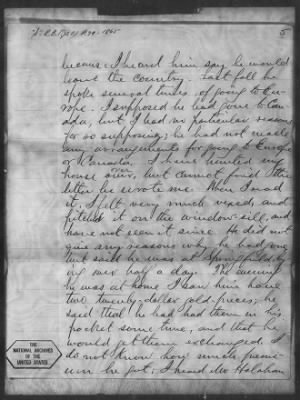 1865
5
because I heard him say he would
leave the country. Last fall he
spoke several times of going to Eu-
rope. I supposed he had gone to Can-
ada, but I had no particular reason
for so supposing; he had not made
any arrangements for going to Europe
or Canada. I have hunted my
house over, but cannot find the
letter he wrote me. When I read
it, I felt very much vexed, and
pitched it on the window-sill, and
have not seen it since. He did not
give any reasons why he had gone
but said he was at Springfield, by
ing over half a day. The evening
he was at home I saw him have
two twenty-dollar gold-pieces; he
said that he had had them in his
pocket some time, and that he
would get them exchanged. I
do not know how much premi-
um he got; I heard Mr Holahan
THE
NATIONAL ARCHIVES
OF THE
UNITED STATES